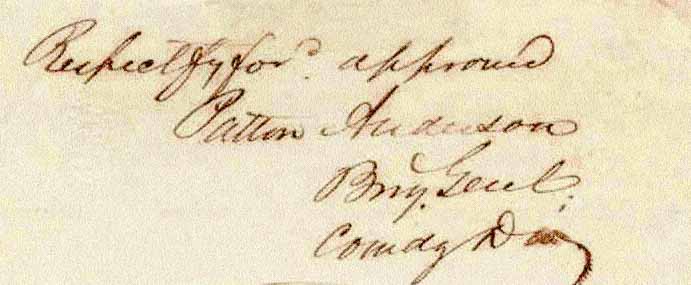 Respectfy for'd. approved
Patton Anderson
Brig. Genl.
Comdg Div